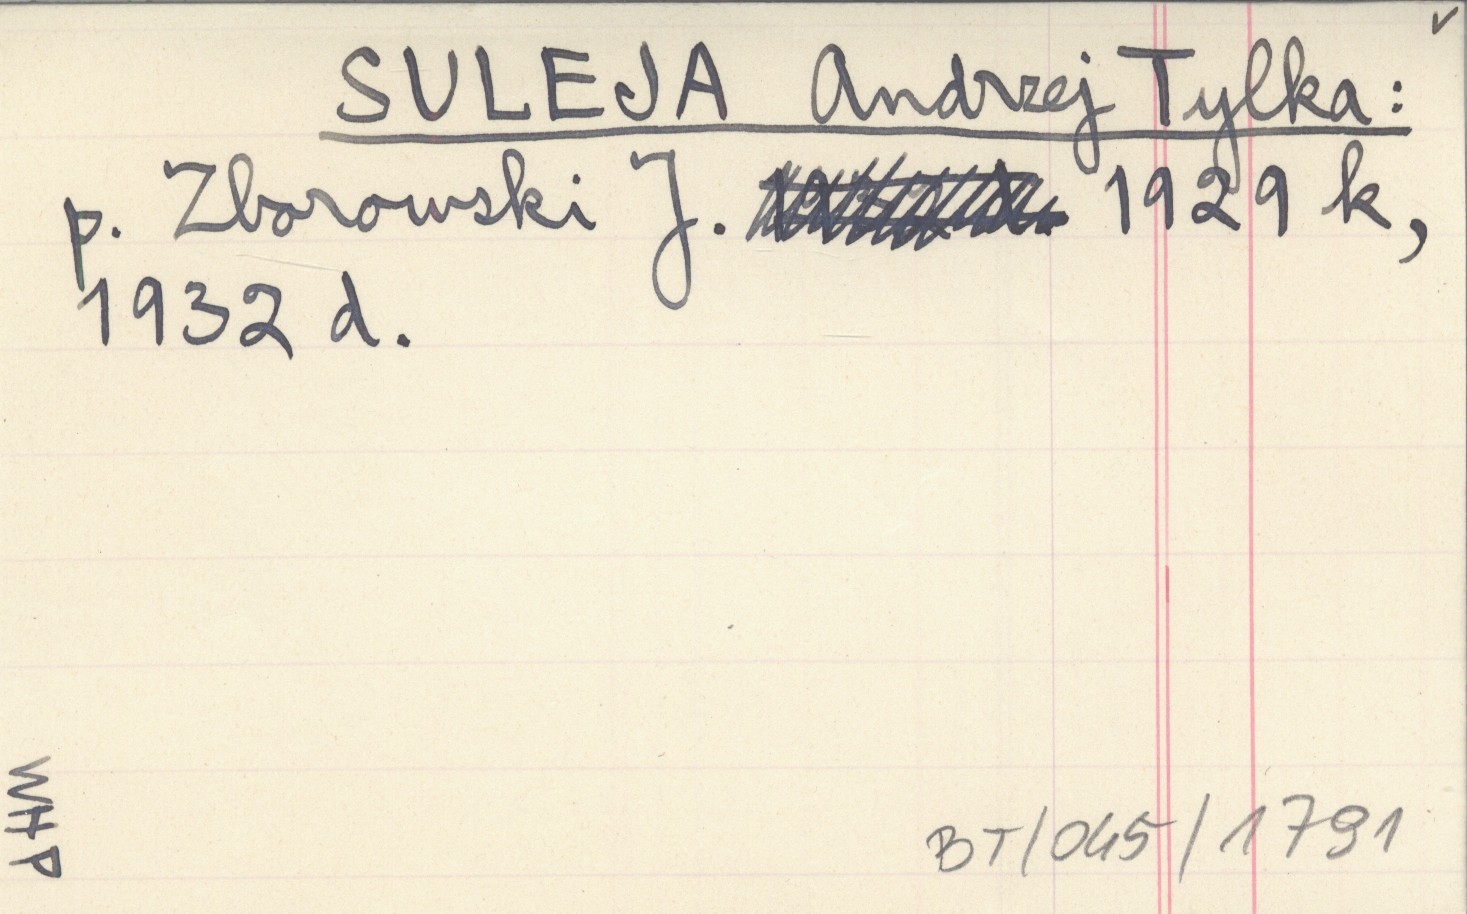 SULEJA Andrzej Tylka:
p. Zborowski J. 1929 k,
1932 d.
WHP
BT/045/1791